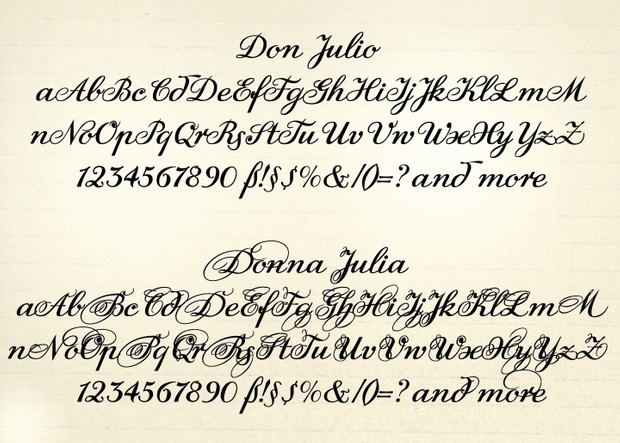 Don Julio
aAbBcCdDeEfFgGhHiIjJkKlLmM
nNoOpPqQrRsStTuUvVwWxXyYzZ
1234567890 ß!§$%&/()=? and more
Donna Julia
aAbBcCdDeEfFgGhHiIjJkKlLmM
nNoOpPqQrRsStTuUvVwWxXyYzZ
1234567890 ß!§$%&/()=? and more